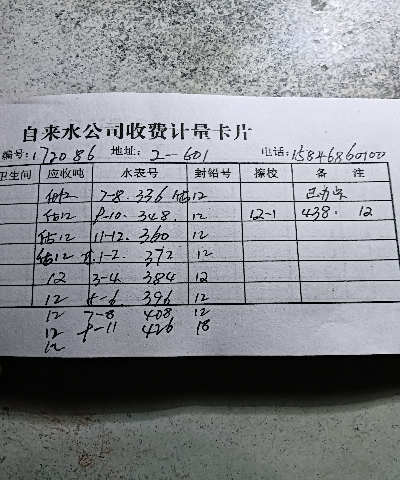 自来水公司收费计量卡片
编号:172086 地址: 2-601 电话:15846860100
卫生间 应收吨 水表号 封铅号 擦校 备 注
估12 7-8. 336 估12
估12 9-10. 348. 12 12-1 438. 12
估12 11-12. 360 12
估12 1-2. 372 12
12 3-4. 384 12
12 5-6 396 12
12 7-8 408 12
12 9-11 426 18
12